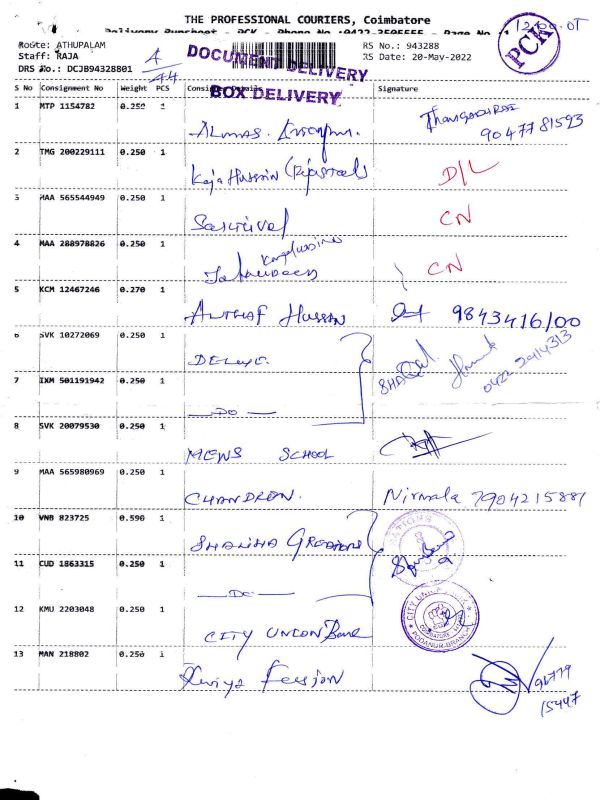 THE PROFESSIONAL COURIERS, Coimbatore
Delivery Runsheet - PCK - Phone No.:0422-2505555 - Page No.:
12:00.OT
PCK
Route: ATHUPALAM
Staff: RAJA
DRS No.: DCJB94328801
4/44
DOCUMENT DELIVERY
BOX DELIVERY
RS No.: 943288
RS Date: 20-May-2022
S No Consignment No Weight PCS Consignee Details Signature
1 MTP 1154782 0.250 1
9047781593
2 TMG 200229111 0.250 1
Kaja Hussain D/L
3 MAA 565544949 0.250 1
CN
4 MAA 288978826 0.250 1
CN
5 KCM 12467246 0.270 1
Hussain 9843416100
6 SVK 10272069 0.250 1
0422 2414313
7 IXM 501191942 0.250 1
— DO —
8 SVK 20079530 0.250 1
MEWS SCHOOL
9 MAA 565980969 0.250 1
CHANDRAN. Nirmala 7904215881
10 VNB 823725 0.590 1
11 CUD 1863315 0.250 1
— DO —
12 KMU 2203048 0.250 1
CITY UNION Bank
CITY UNION BANK
COIMBATORE
PODANUR BRANCH
13 MAN 218802 0.250 1
96779
15447